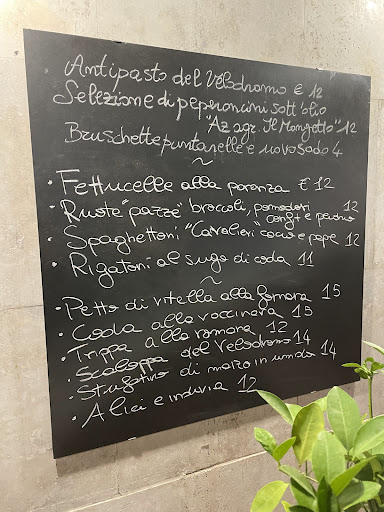 Antipasto del Velodromo € 12
Selezione di peperoncini sott'olio
"Az agr. Il Mongetto" 12
Bruschette puntarelle e uovo sodo 4
~
• Fettucelle alla paranza € 12
• Ruote "pazze" broccoli, pomodori 12
confit e pecorino
• Spaghettoni "Cavalieri" cacio e pepe 12
• Rigatoni al sugo di coda 11
~
• Petto di vitella alla fornara 15
• Coda alla vaccinara 15
• Trippa alla romana 12
• Scaloppa del Velodromo 14
• Stufatino di manzo in umido 14
• Alici e indivia 12